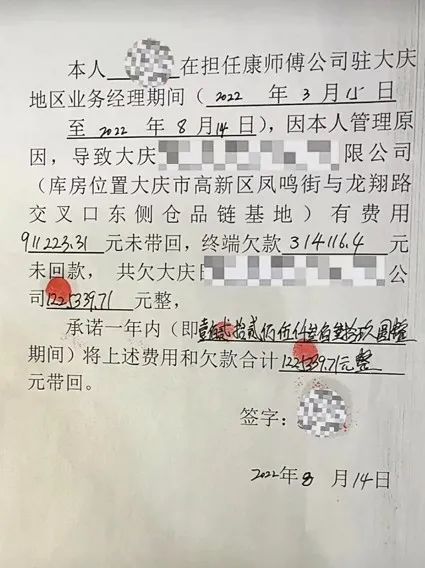 本人 在担任康师傅公司驻大庆
地区业务经理期间（2022 年 3月15日
至 2022 年 8月14日），因本人管理原
因，导致大庆 有限公司
（库房位置大庆市高新区凤鸣街与龙翔路
交叉口东侧仓品链基地）有费用
911223.31 元未带回，终端欠款 314116.4 元
未回款，共欠大庆 公
司 1225339.71 元整，
承诺一年内（即壹佰贰拾贰 伍仟叁佰叁拾玖圆整
期间）将上述费用和欠款合计1225339.71元整
元带回。
签字：
2022年8 月14日